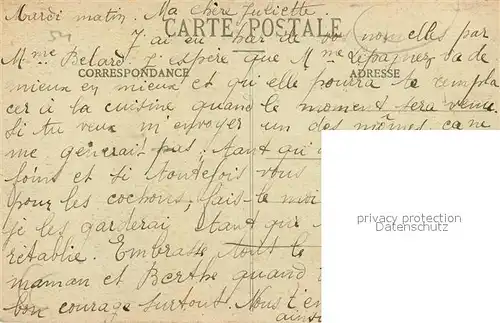 Mardi matin. Ma chère Juliette
CARTE POSTALE
54
J'ai eu par des nouvelles par
Mme Belard. J'espère que Mme Lepagnez va de
CORRESPONDANCE
ADRESSE
mieux en mieux et qu'elle pourra te rempla
cer à la cuisine quand le moment sera venu.
Si tu veux m'envoyer un des mômes, ca ne
me générait pas, tant qu'
foins et si toutefois vous
pour les cochons, fais-le moi
je les garderai étant que
rétablie. Embrasse tout le
maman et Berthe quand
bon courage surtout. Nous t'en
ains
privacy protection
Datenschutz